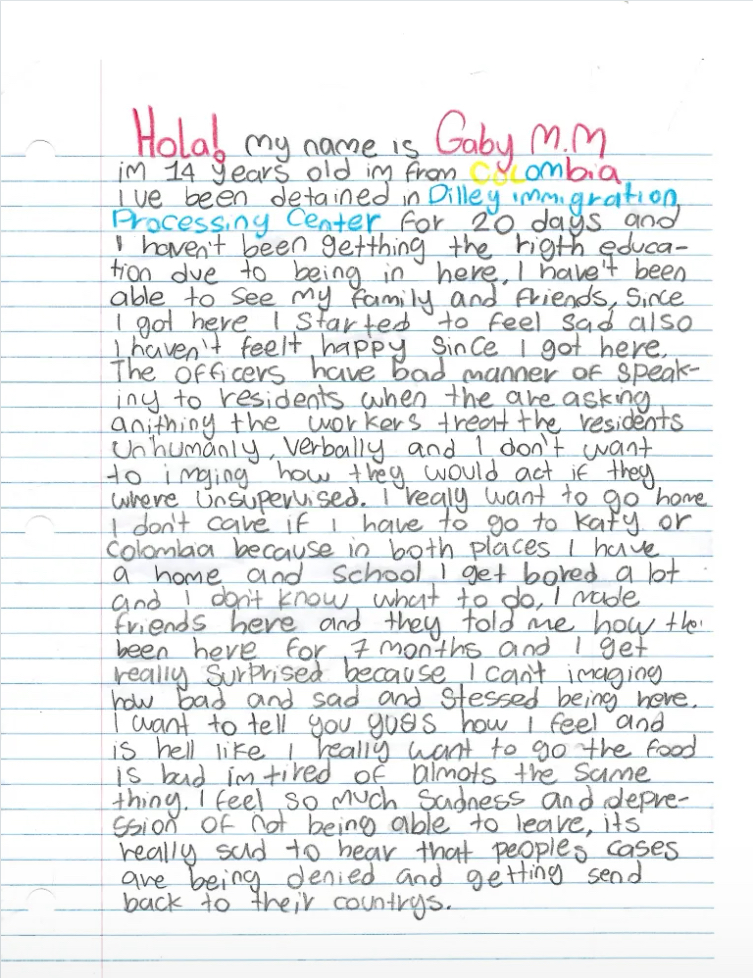 Hola! my name is Gaby M.M
im 14 years old im from Colombia
I've been detained in Dilley immigration
Processing Center for 20 days and
I haven't been getthing the rigth educa-
tion due to being in here, I have't been
able to see my family and friends, Since
I got here I started to feel sad also
I haven't feelt happy Since I got here.
The officers have bad manner of speak-
iny to residents when the are asking
anithing the workers treat the residents
Unhumanly, verbally and I don't want
to imging how they would act if they
where Unsupervised. I realy want to go home
I don't care if I have to go to Katy or
Colombia because in both places I have
a home and school I get bored a lot
and I don't know what to do, I made
friends here and they told me how the
been here for 7 months and I get
really Surprised because I can't imaging
how bad and sad and stessed being here.
I want to tell you guys how I feel and
is hell like I really want to go the food
is bad im tired of almots the same
thing. I feel so much Sadness and depre-
ssion of not being able to leave, its
really sad to hear that peoples cases
are being denied and getting send
back to their countrys.